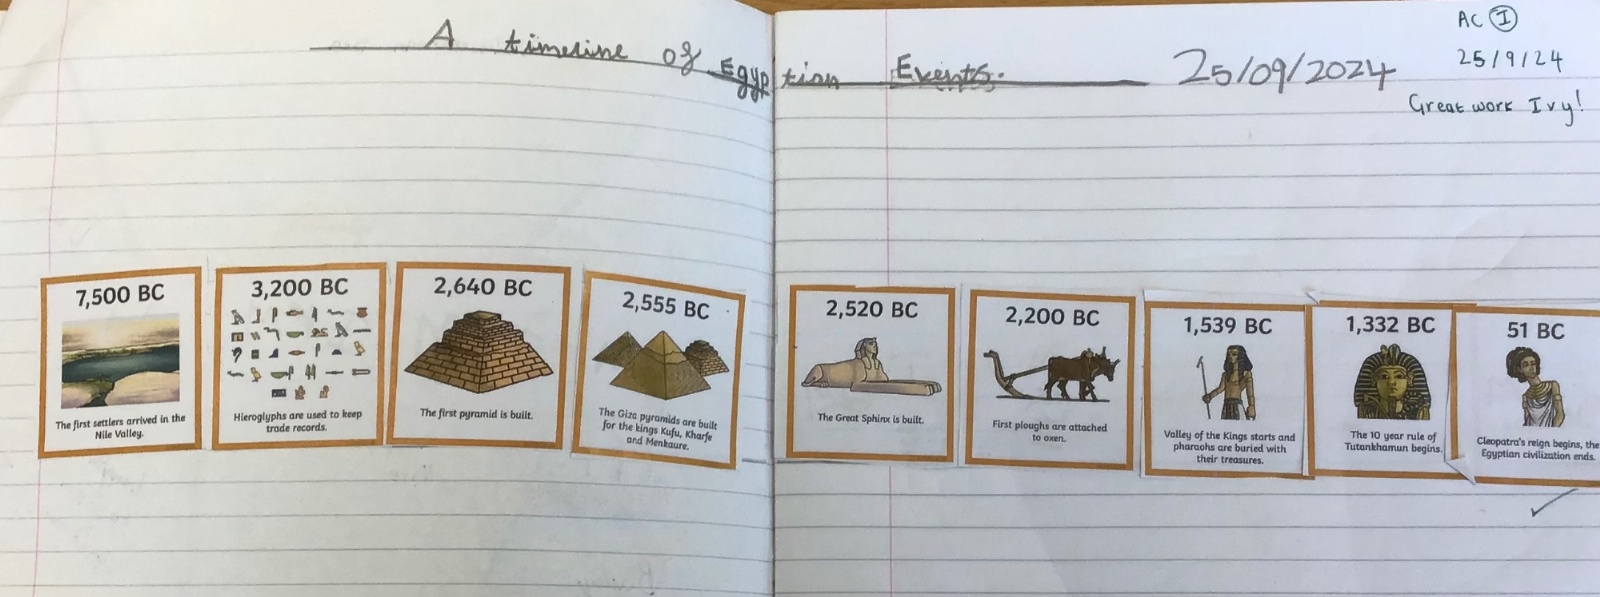 A timeline of Egyptian Events.
25/09/2024
AC I
25/9/24
Great work Ivy!
7,500 BC
The first settlers arrived in the
Nile Valley.
3,200 BC
Hieroglyphs are used to keep
trade records.
2,640 BC
The first pyramid is built.
2,555 BC
The Giza pyramids are built
for the kings Kufu, Kharfe
and Menkaure.
2,520 BC
The Great Sphinx is built.
2,200 BC
First ploughs are attached
to oxen.
1,539 BC
Valley of the Kings starts and
pharaohs are buried with
their treasures.
1,332 BC
The 10 year rule of
Tutankhamun begins.
51 BC
Cleopatra's reign begins, the
Egyptian civilization ends.